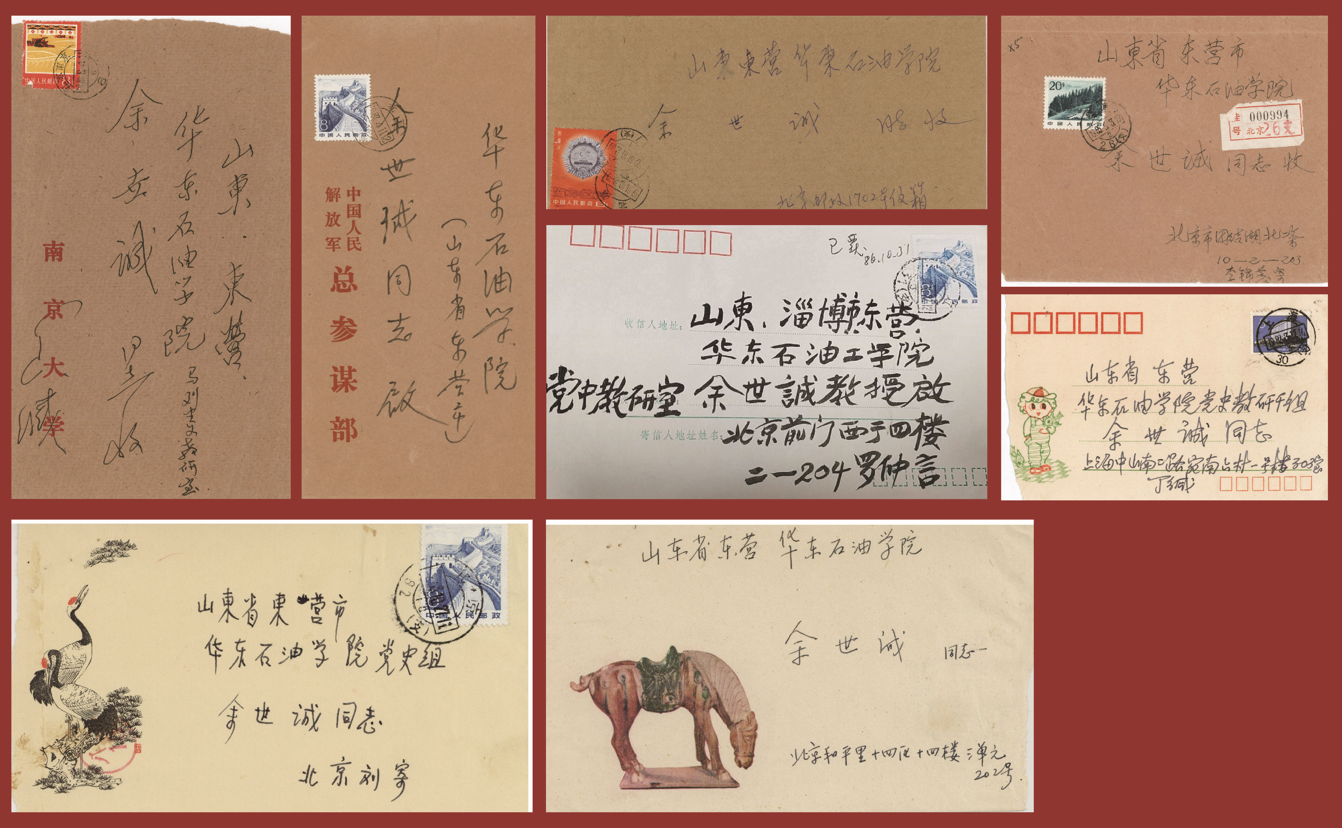 山東·東营
华东石油学院
马列主义教研室
余世诚
收
南京大学
中国人民邮政
华东石油学院
(山东省东营)
余世诚同志啟
中国人民
解放军
总参谋部
8
中国人民邮政
山东东营华东石油学院
余世诚
收
北京邮政1702号信箱
中国人民邮政
山東省东营市
华东石油学院
余世诚同志收
000994
号 北京26支
20
中国人民邮政
10-2-203
已覆
86.10.31
收信人地址:
山東、淄博市东营.
华东石油工学院
党中教研室 余世誠教授啟
寄信人地址姓名:
北京前门西于四楼
二一204罗仲言
山东省 东营
华东石油学院党史教研组
余世诚同志
上海中山南二路宛南六村一号楼303室
上海
30
山東省東营市
华东石油学院党史组
余世诚同志
北京刘寄
中国人民邮政
山东省东营 华东石油学院
余世诚 同志
北京和平里十四区十四楼三单元
202号